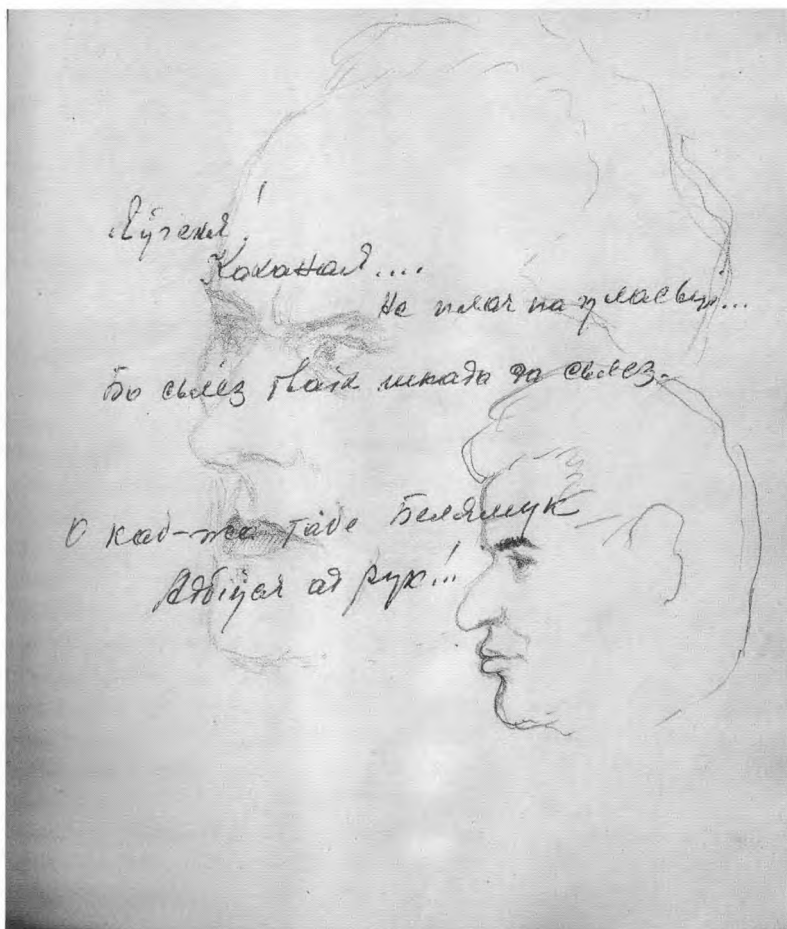 Яўгенія!
Каханая....
Не плач па уласьву...
Бо сьлёз тваіх шкада да сьлёз.
О каб-жа Табе Белямук
Адбіўся ад рук!!